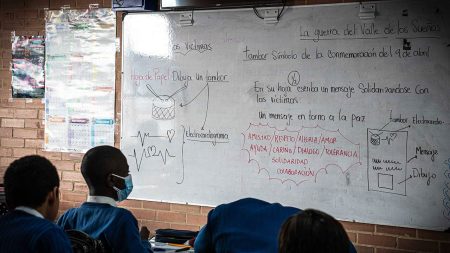 La guerra del Valle de los Sueños
las Víctimas
Tambor Símbolo de la conmemoración del 9 de abril
Hoja de Papel Dibuja un tambor.
En su hoja escriba un mensaje Solidarizandose Con
las víctimas
un mensaje en torno a la paz
Electrocardiograma
AMISTAD/RESPETO/ALEGRIA/AMOR
AYUDA/CARIÑO/DIALOGO/TOLERANCIA
SOLIDARIDAD
COLABORACIÓN
Tambor
Mensaje
Dibujo